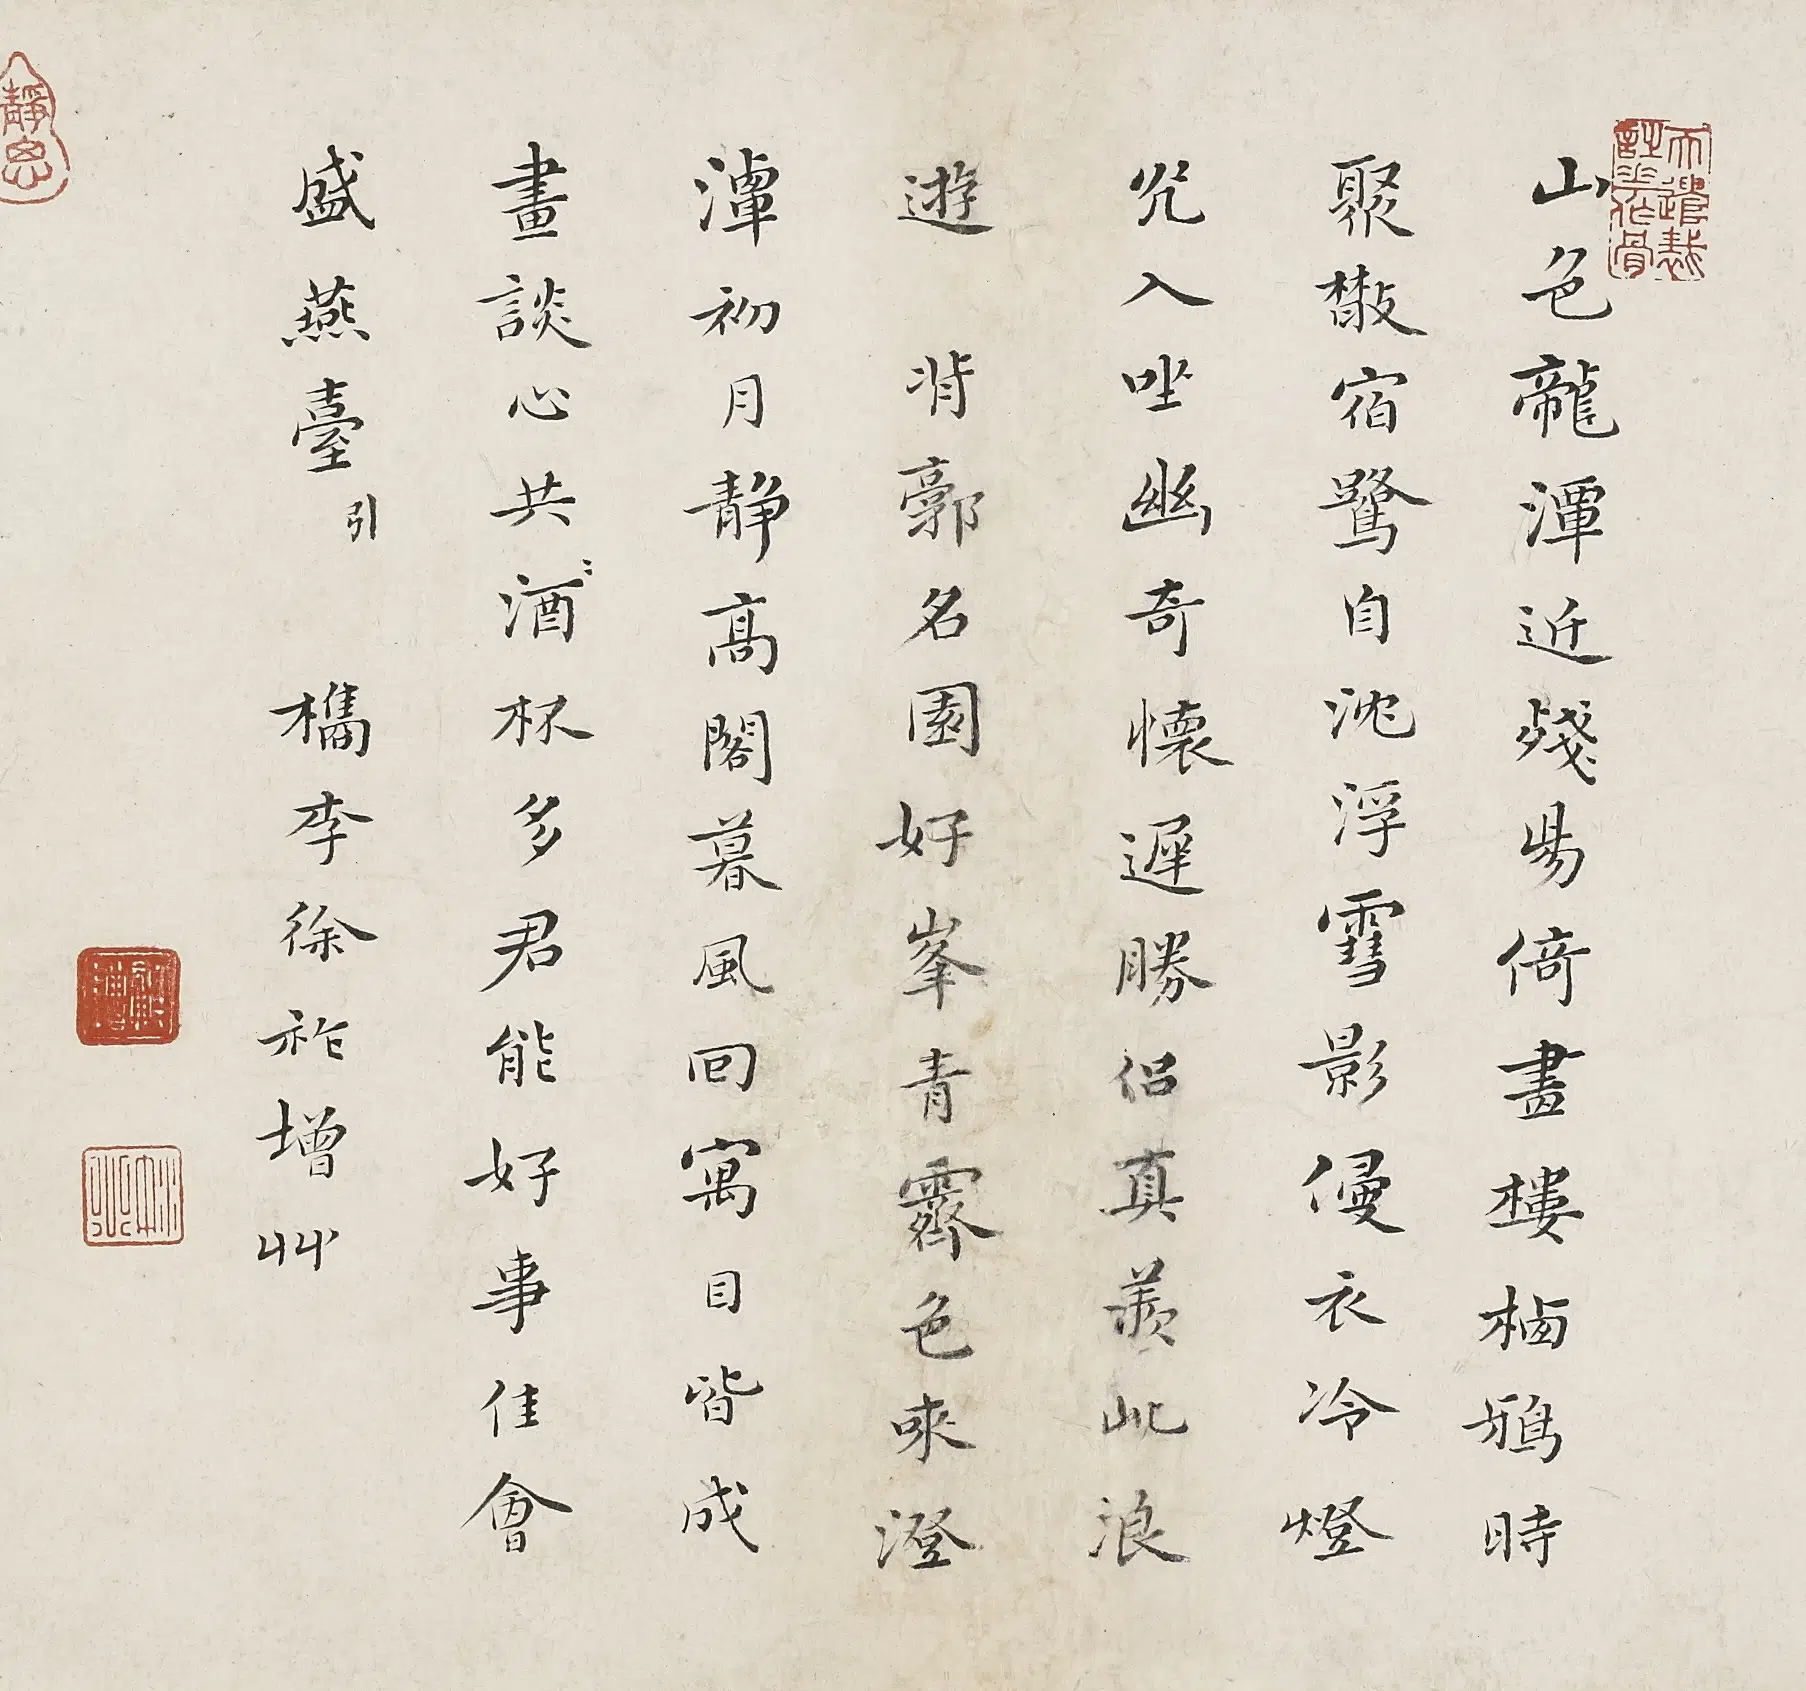 山色龍潭近殘昜倚畫樓栖鴉時
聚散宿鷺自沈浮雪影侵衣冷燈
光入坐幽奇懷遲勝侣真羨此浪
遊 背郭名園好峯青霽色來澄
潭初月靜高閣暮風回寓目皆成
畫談心共酒杯多君能好事佳會
盛燕臺引 檇李徐祚增艸